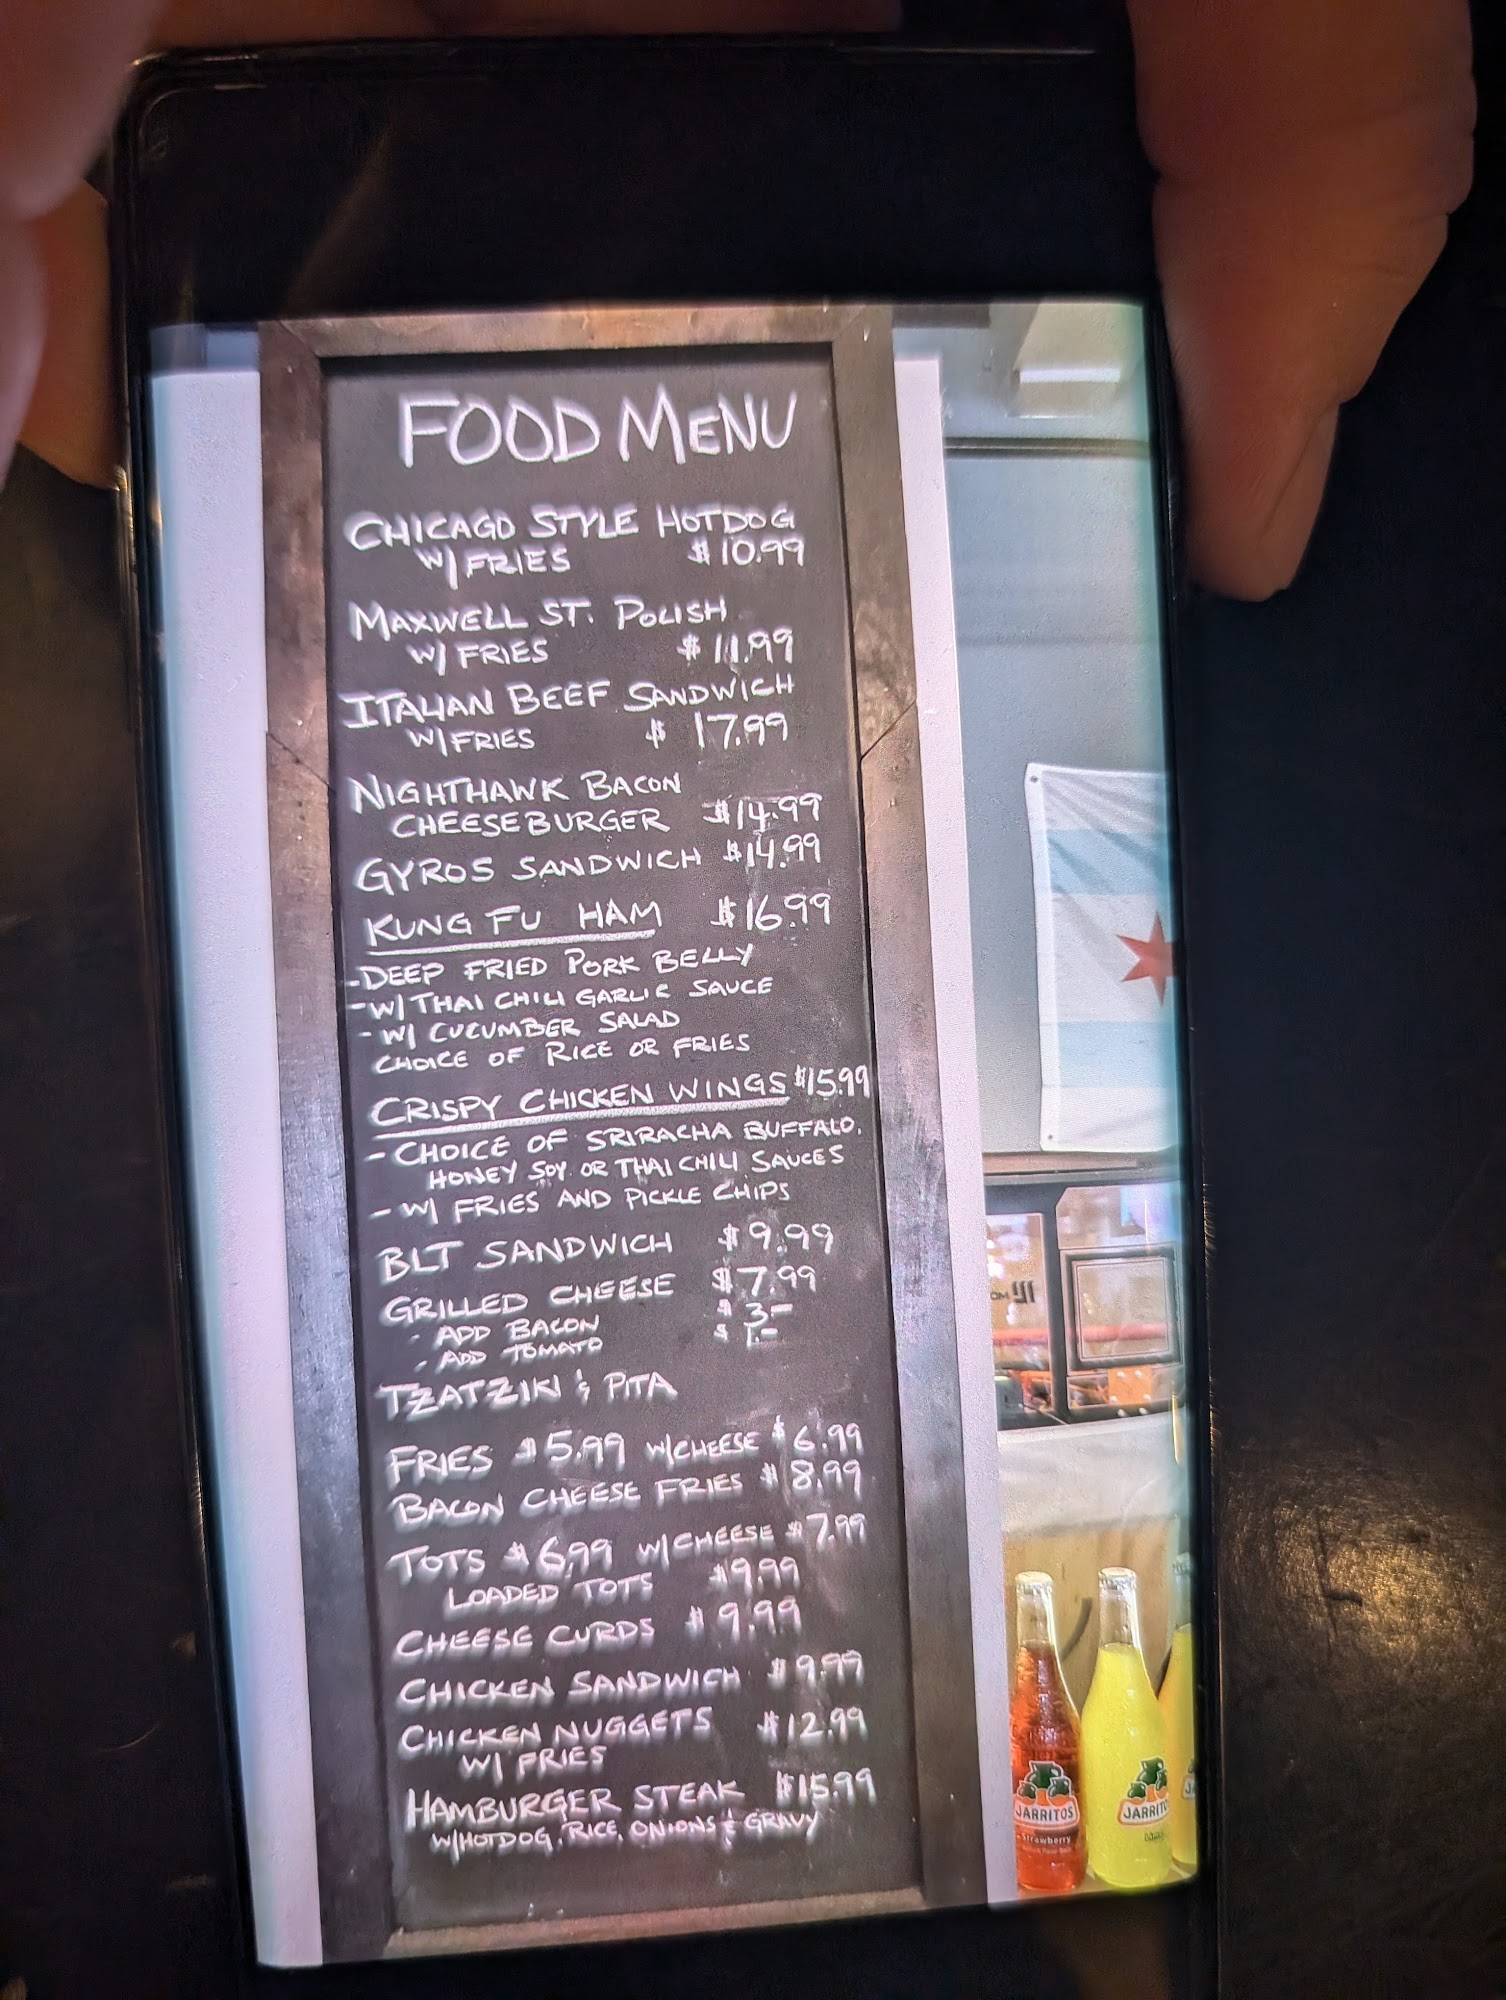 FOOD MENU
CHICAGO STYLE HOTDOG
W/ FRIES $10.99
MAXWELL ST. POLISH
W/ FRIES $11.99
ITALIAN BEEF SANDWICH
W/ FRIES $17.99
NIGHTHAWK BACON
CHEESEBURGER $14.99
GYROS SANDWICH $14.99
KUNG FU HAM $16.99
- DEEP FRIED PORK BELLY
- W/ THAI CHILI GARLIC SAUCE
- W/ CUCUMBER SALAD
CHOICE OF RICE OR FRIES
CRISPY CHICKEN WINGS $15.99
- CHOICE OF SRIRACHA BUFFALO,
HONEY SOY OR THAI CHILI SAUCES
- W/ FRIES AND PICKLE CHIPS
BLT SANDWICH $9.99
GRILLED CHEESE $7.99
- ADD BACON $3-
- ADD TOMATO $1.-
TZATZIKI & PITA
FRIES $5.99 W/CHEESE $6.99
BACON CHEESE FRIES $8.99
TOTS $6.99 W/CHEESE $7.99
LOADED TOTS $9.99
CHEESE CURDS $9.99
CHICKEN SANDWICH $9.99
CHICKEN NUGGETS $12.99
W/ FRIES
HAMBURGER STEAK $15.99
W/HOTDOG, RICE, ONIONS & GRAVY
JARRITOS
Strawberry
JARRIT